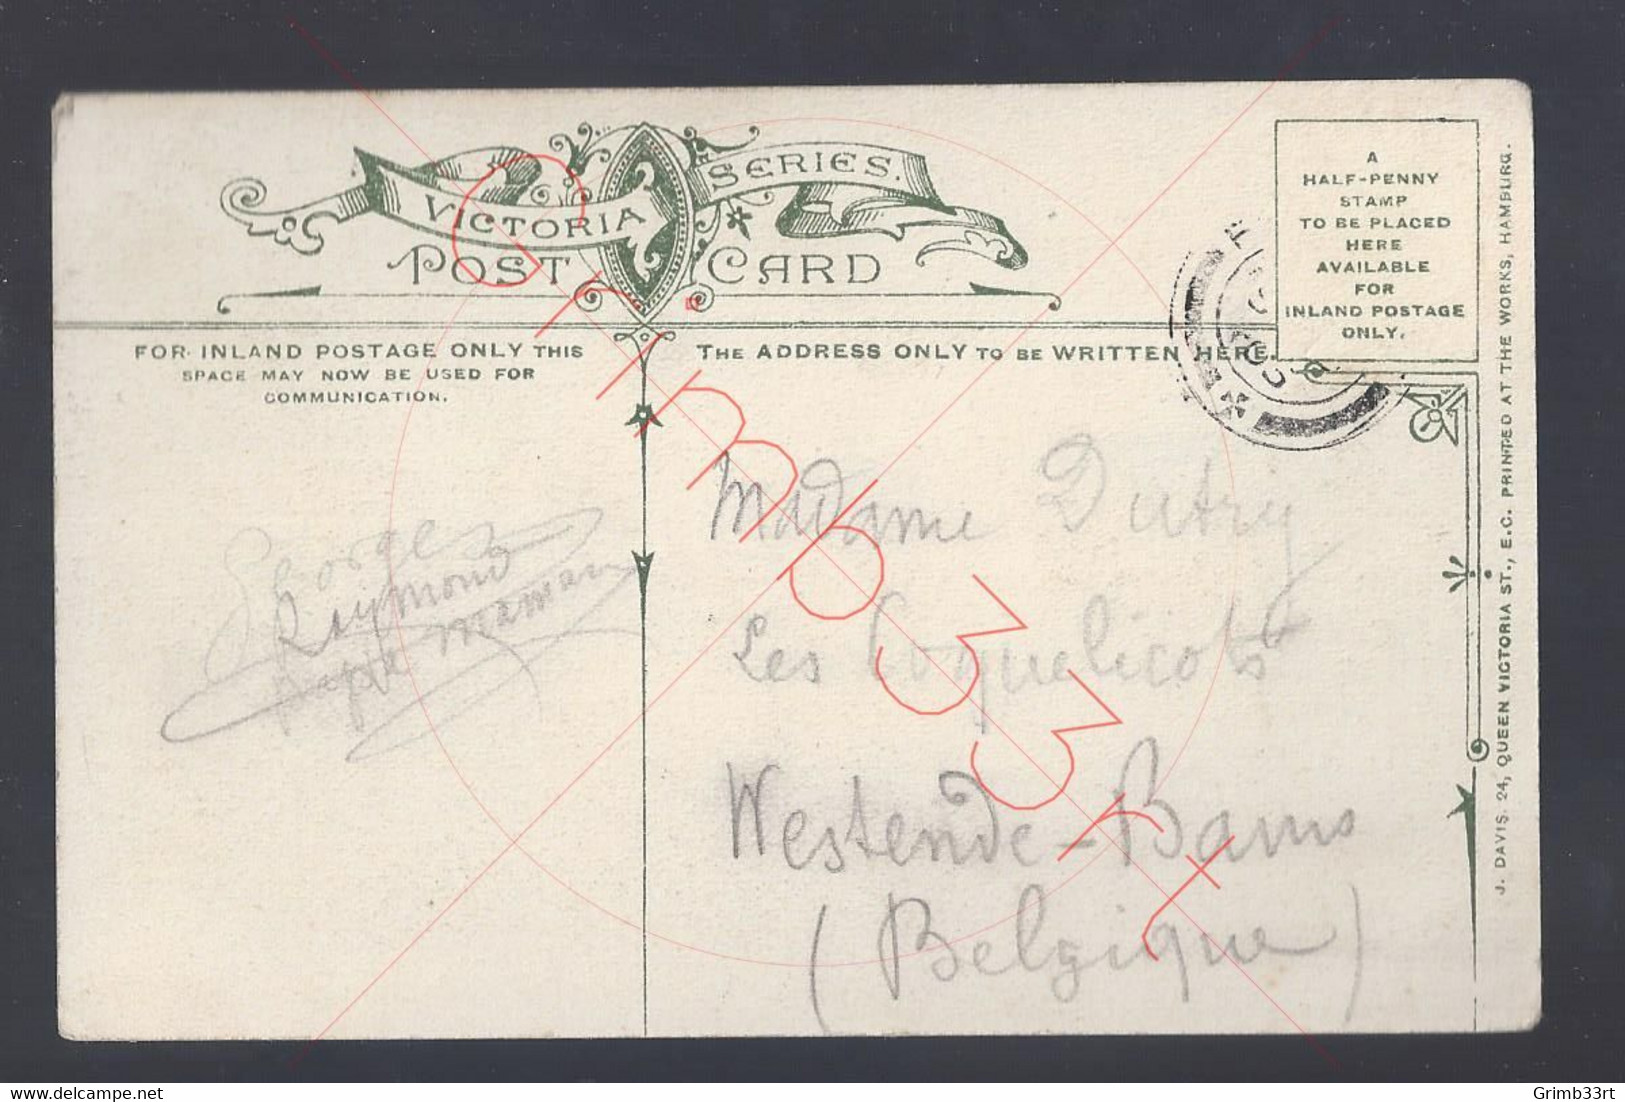 VICTORIA SERIES.
POST CARD
FOR INLAND POSTAGE ONLY THIS
SPACE MAY NOW BE USED FOR
COMMUNICATION.
THE ADDRESS ONLY TO BE WRITTEN HERE.
A
HALF-PENNY
STAMP
TO BE PLACED
HERE
AVAILABLE
FOR
INLAND POSTAGE
ONLY.
J. DAVIS. 24, QUEEN VICTORIA ST., E.C. PRINTED AT THE WORKS, HAMBURG.
Georges
Raymond
Papa Maman
Madame Dutry
Les Coquelicots
Westende-Bains
(Belgique)
Grimb33rt
delcampe.net
Grimb33rt